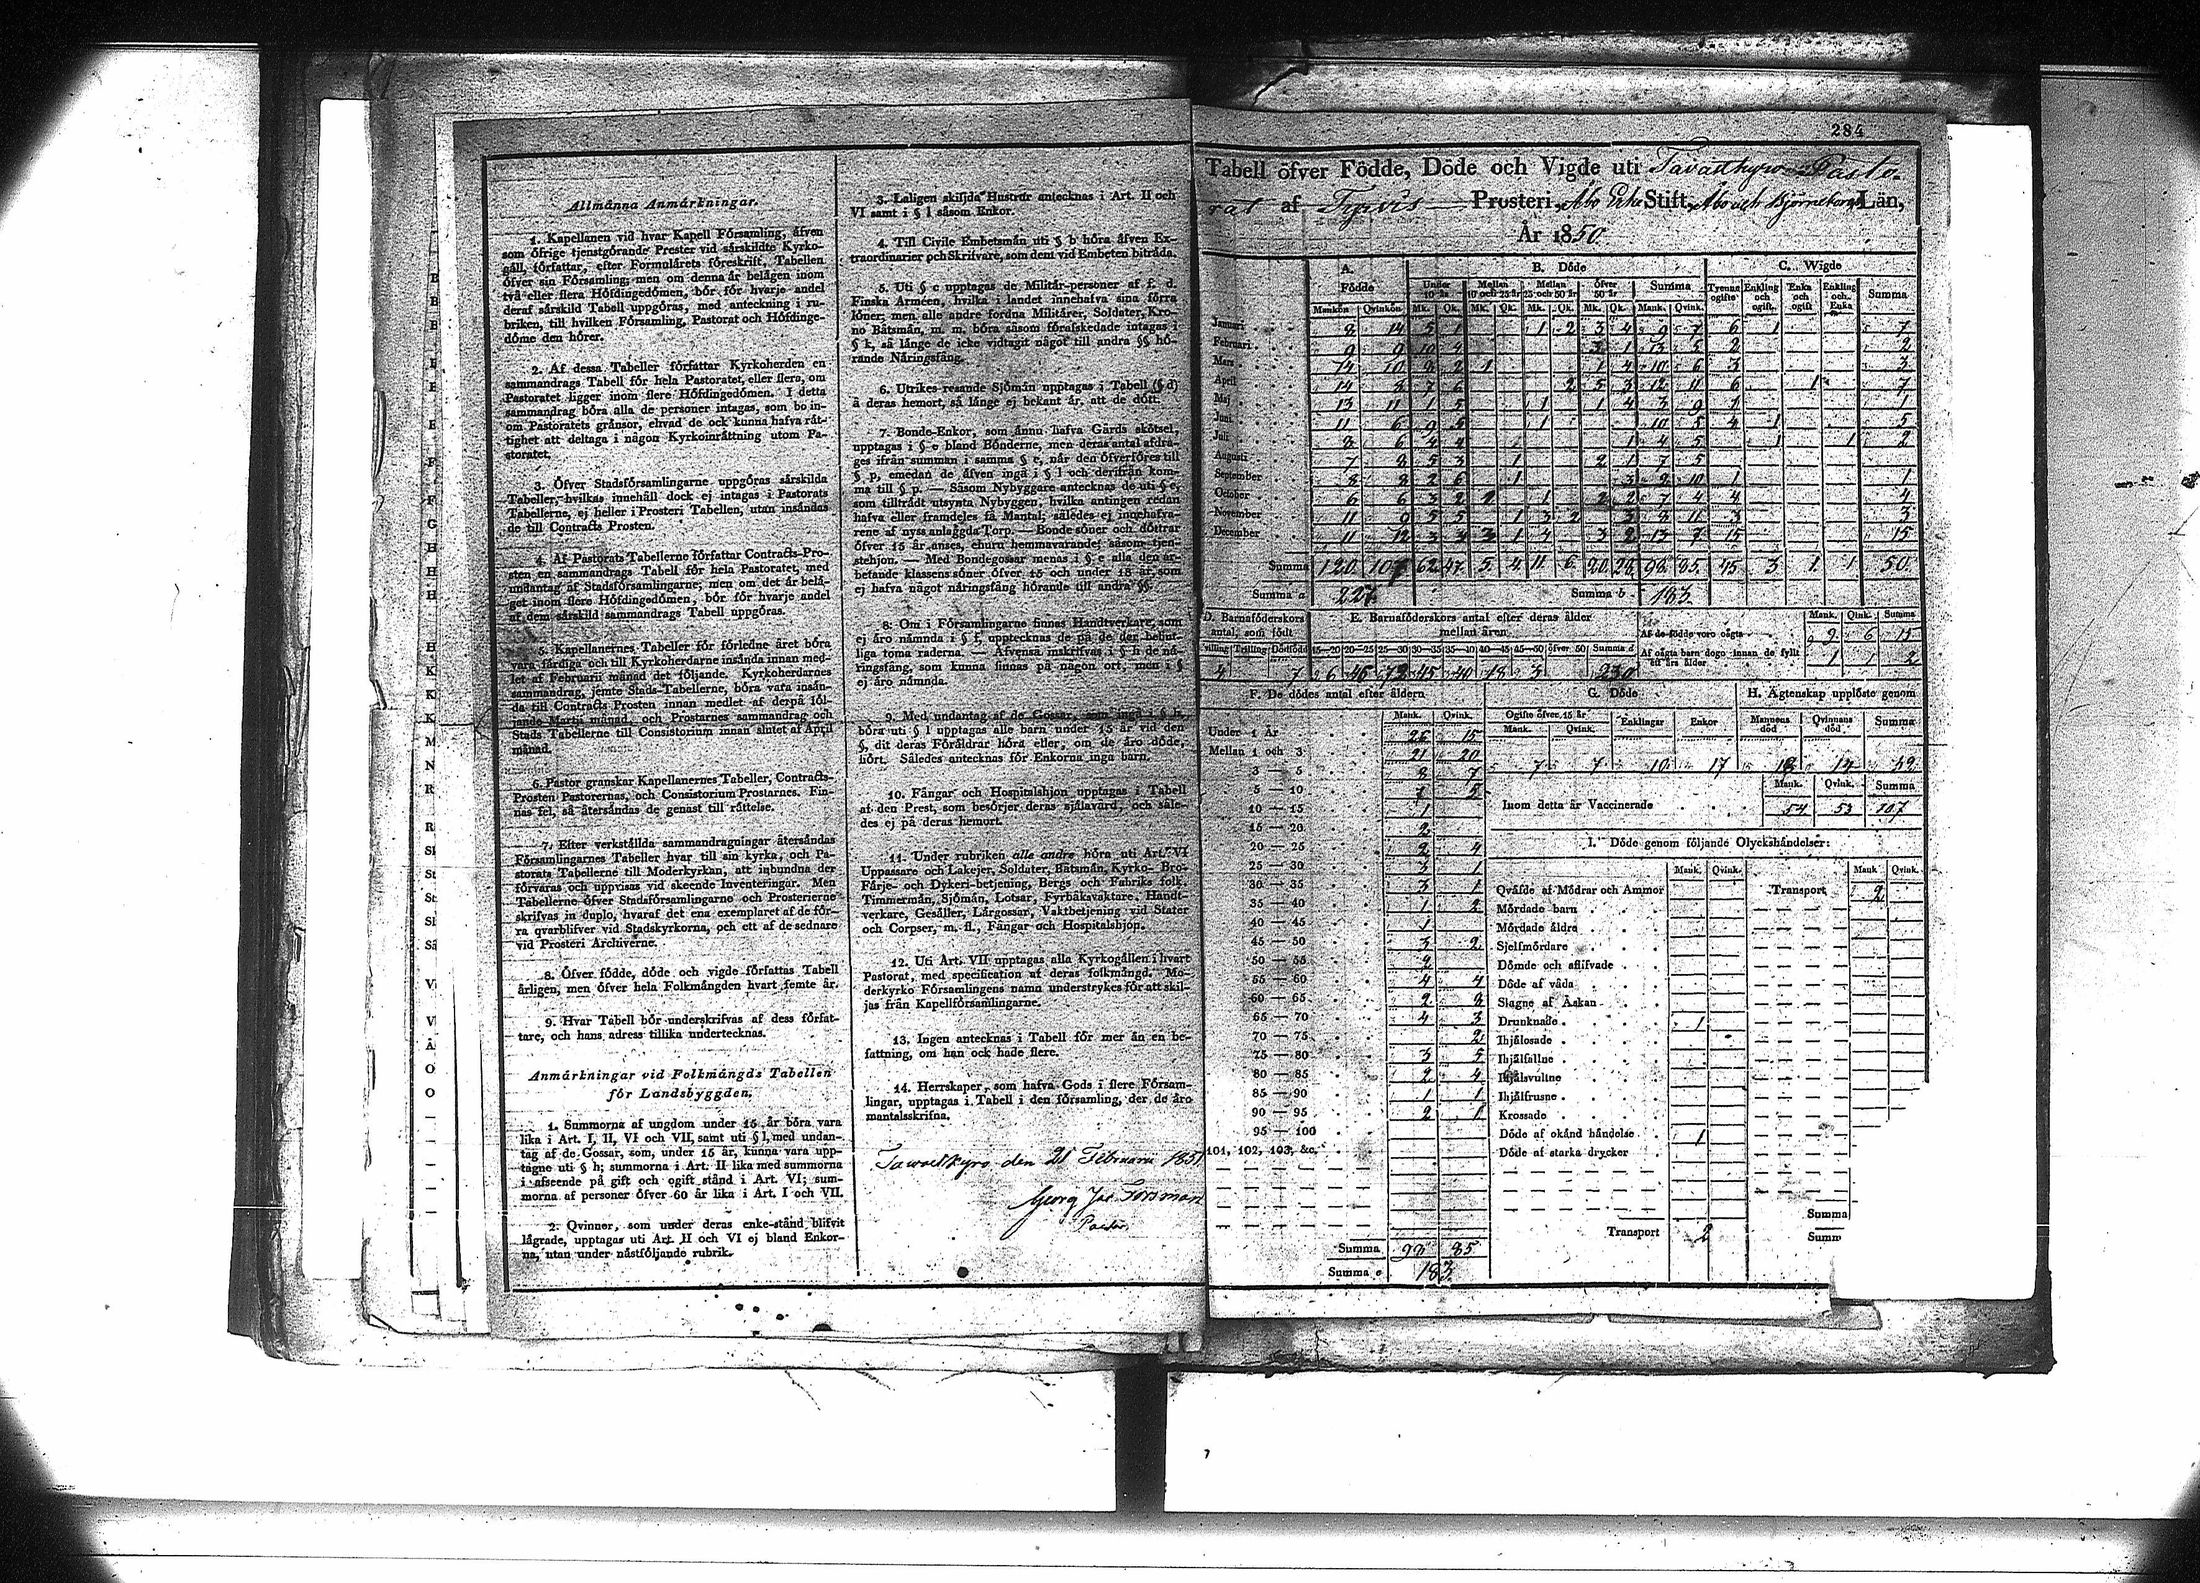 Allmänna Anmärkningar.
1. Kapellanen vid hvar Kapell Församling, äfven
som öfrige tjenstgörande Prester vid särskildte Kyrko-
gäll, författar, efter Formulärets föreskrift, Tabellen
öfver sin Församling; men om denna är belägen inom
två eller flera Höfdingedömen, bör för hvarje andel
deraf särskild Tabell uppgöras, med anteckning i ru-
briken, till hvilken Församling, Pastorat och Höfdinge-
döme den hörer.
2. Af dessa Tabeller författar Kyrkoherden en
sammandrags Tabell för hela Pastoratet, eller flera, om
Pastoratet ligger inom flere Höfdingedömen. I detta
sammandrag böra alla de personer intagas, som bo in-
om Pastoratets gränsor, ehvad de ock kunna hafva rät-
tighet att deltaga i någon Kyrkoinrättning utom Pa-
storatet.
3. Öfver Stadsförsamlingarne uppgöras särskilda
Tabeller, hvilkas innehåll dock ej intagas i Pastorats
Tabellerne, ej heller i Prosteri Tabellen, utan insändas
de till Contracts Prosten.
4. Af Pastorats Tabellerne författar Contracts-Pro-
sten en sammandrags Tabell för hela Pastoratet, med
undantag af Stadsförsamlingarne; men om det är belä-
get inom flere Höfdingedömen, bör för hvarje andel
af dem särskild sammandrags Tabell uppgöras.
5. Kapellanernes Tabeller för förledne året böra
vara färdiga och till Kyrkoherdarne insända innan med-
let af Februarii månad det följande. Kyrkoherdarnes
sammandrag, jemte Stads-Tabellerne, böra vara insän-
da till Contracts Prosten innan medlet af derpå föl-
jande Martii månad, och Prostarnes sammandrag och
Stads Tabellerne till Consistorium innan slutet af April
månad.
6. Pastor granskar Kapellanernes Tabeller, Contracts-
Prosten Pastorernas, och Consistorium Prostarnes. Fin-
nas fel, så återsändas de genast till rättelse.
7. Efter verkställda sammandragningar återsändas
Församlingarnes Tabeller hvar till sin kyrka, och Pa-
storats Tabellerne till Moderkyrkan, att inbundna der
förvaras och uppvisas vid skeende Inventeringar. Men
Tabellerne öfver Stadsförsamlingarne och Prosterierne
skrifvas in duplo, hvaraf det ena exemplaret af de för-
ra qvarblifver vid Stadskyrkorna, och ett af de sednare
vid Prosteri Archiverne.
8. Öfver födde, döde och vigde författas Tabell
årligen, men öfver hela Folkmängden hvart femte år.
9. Hvar Tabell bör underskrifvas af dess förfat-
tare, och hans adress tillika undertecknas.
Anmärkningar vid Folkmängds Tabellen
för Landsbyggden.
1. Summorna af ungdom under 15 år böra vara
lika i Art. I, II, VI och VII, samt uti § l, med undan-
tag af de Gossar, som, under 15 år, kunna vara upp-
tagne uti § h; summorna i Art. II lika med summorna
i afseende på gift och ogift stånd i Art. VI; sum-
morna af personer öfver 60 år lika i Art. I och VII.
2. Qvinnor, som under deras enke-stånd blifvit
lägrade, upptagas uti Art. II och VI ej bland Enkor-
na, utan under nästföljande rubrik.
3. Laligen skiljda Hustrur antecknas i Art. II och
VI samt i § l såsom Enkor.
4. Till Civile Embetsmän uti § b höra äfven Ex-
traordinarier och Skrifvare, som dem vid Embeten biträda.
5. Uti § c upptagas de Militär-personer af f. d.
Finska Arméen, hvilka i landet innehafva sina förra
löner; men alle andre fordna Militärer, Soldater, Kro-
no Båtsmän, m. m. böra såsom förafskedade intagas i
§ k, så länge de icke vidtagit något till andra §§ hö-
rande Näringsfång.
6. Utrikes resande Sjömän upptagas i Tabell (§ d)
å deras hemort, så länge ej bekant är, att de dött.
7. Bonde-Enkor, som ännu hafva Gårds skötsel,
upptagas i § e bland Bönderne, men deras antal afdra-
ges ifrån summan i samma § e, när den öfverföres till
§ p, emedan de äfven ingå i § l och derifrån kom-
ma till § p. — Såsom Nybyggare antecknas de uti § e,
som tillträdt utsynta Nybyggen, hvilka antingen redan
hafva eller framdeles få Mantal; således ej innehafva-
rene af nyss anlaggda Torp. — Bonde söner och döttrar
öfver 15 år anses, ehuru hemmavarande, såsom tjen-
stehjon. — Med Bondegossar menas i § e alla den ar-
betande klassens söner öfver 15 och under 18 år, som
ej hafva något näringsfång hörande till andra §§.
8. Om i Församlingarne finnes Handtverkare, som
ej äro nämnda i § f, upptecknas de på de der behöf-
liga toma raderna. — Äfvensa inskrifvas i § h de nä-
ringsfång, som kunna finnas på någon ort, men i §
ej äro nämnda.
9. Med undantag af de Gossar, som ingå i § h,
böra uti § l upptagas alle barn under 15 år vid den
§, dit deras Föräldrar höra eller, om de äro döde,
hört. Således antecknas för Enkorna inga barn.
10. Fångar och Hospitalshjon upptagas i Tabell
af den Prest, som besörjer deras själavård, och såle-
des ej på deras hemort.
11. Under rubriken alle andre höra uti Art. VI
Uppassare och Lakejer, Soldater, Båtsmän, Kyrko- Bro-
Färje- och Dykeri-betjening, Bergs och Fabriks folk,
Timmermän, Sjömän, Lotsar, Fyrbåksväktare, Handt-
verkare, Gesäller, Lärgossar, Vaktbetjening vid Stater
och Corpser, m. fl., Fångar och Hospitalshjon.
12. Uti Art. VII upptagas alla Kyrkogällen i hvart
Pastorat, med specification af deras folkmängd. Mo-
derkyrko Församlingens namn understrykes för att skil-
jas från Kapellförsamlingarne.
13. Ingen antecknas i Tabell för mer än en be-
fattning, om han ock hade flere.
14. Herrskaper, som hafva Gods i flere Försam-
lingar, upptagas i Tabell i den församling, der de äro
mantalsskrifna.
Tawastkyro den 21 Februarii 1851
Georg Jac Forsman
Pastor.
284
Tabell öfver Födde, Döde och Vigde uti Tavastkyro Pasto-
rat af Tyrvis Prosteri, Åbo Erke Stift, Åbo och Björneborgs Län,
År 1850.
A. Födde B. Döde C. Wigde
Under 10 år Mellan 10 och 25 år Mellan 25 och 50 år öfver 50 år Summa Tvenne ogifte Enkling och ogift. Enka och ogift Enkling och Enka Summa
Mankön Qvinkön Mk. Qk. Mk. Qk. Mk. Qk. Mk. Qk. Mank. Qvink.
Januari 8 14 5 1 1 2 3 4 9 7 6 1 7
Februari 9 9 10 4 3 1 13 5 2 2
Mars 14 10 8 2 1 1 4 10 6 3 3
April 14 8 7 6 2 5 3 12 11 6 1 7
Maj 13 11 1 5 1 1 4 3 9 1 1
Juni 11 6 9 5 1 10 5 4 1 5
Juli 8 6 4 4 1 4 5 1 1 2
Augusti 7 8 5 3 1 2 1 7 5
September 8 8 2 6 1 3 2 10 1 1
October 6 6 3 2 2 1 2 2 7 4 4 4
November 11 9 5 5 1 3 2 3 8 11 3 3
December 11 12 3 4 3 1 4 3 2 13 7 15 15
Summa 120 107 62 47 5 4 11 6 20 28 98 85 45 3 1 1 50
Summa a 227 Summa b 183
D. Barnaföderskors antal, som födt
Tvilling Trilling Dödfödd
4 7
E. Barnaföderskors antal efter deras ålder mellan åren
15—20 20—25 25—30 30—35 35—40 40—45 45—50 öfver 50 Summa d
6 46 72 45 40 18 3 230
Mank. Qvink. Summa
Af de födde voro oägta 9 6 15
Af oägta barn dogo innan de fyllt ett års ålder 1 1 2
F. De dödes antal efter åldern
Mank. Qvink.
Under 1 År 26 15
Mellan 1 och 3 21 20
3 — 5 8 7
5 — 10 7 5
10 — 15 1
15 — 20 2
20 — 25 2 4
25 — 30 3 1
30 — 35 3 1
35 — 40 1 2
40 — 45 1
45 — 50 3 2
50 — 55 2
55 — 60 4 4
60 — 65 2 8
65 — 70 4 3
70 — 75 2
75 — 80 3 5
80 — 85 2 4
85 — 90 1 1
90 — 95 2 1
95 — 100
101, 102, 103, &c.
Summa 98 85
Summa e 183
G. Döde
Ogifte öfver 15 år Enklingar Enkor
Mank. Qvink.
7 7 10 17
H. Ägtenskap upplöste genom
Mannens död Qvinnans död Summa
18 14 32
Mank. Qvink. Summa
Inom detta år Vaccinerade 54 53 107
I. Döde genom följande Olyckshändelser:
Mank. Qvink. Mank Qvink.
Qväfde af Mödrar och Ammor
Mördade barn
Mördade äldre
Sjelfmördare
Dömde och aflifvade
Döde af våda
Slagne af Åskan
Drunknade 1
Ihjälosade
Ihjälfallne
Ihjälsvultne
Ihjälfrusne
Krossade
Döde af okänd händelse 1
Döde af starka drycker
Transport 2
Transport 2
Summa
Summ